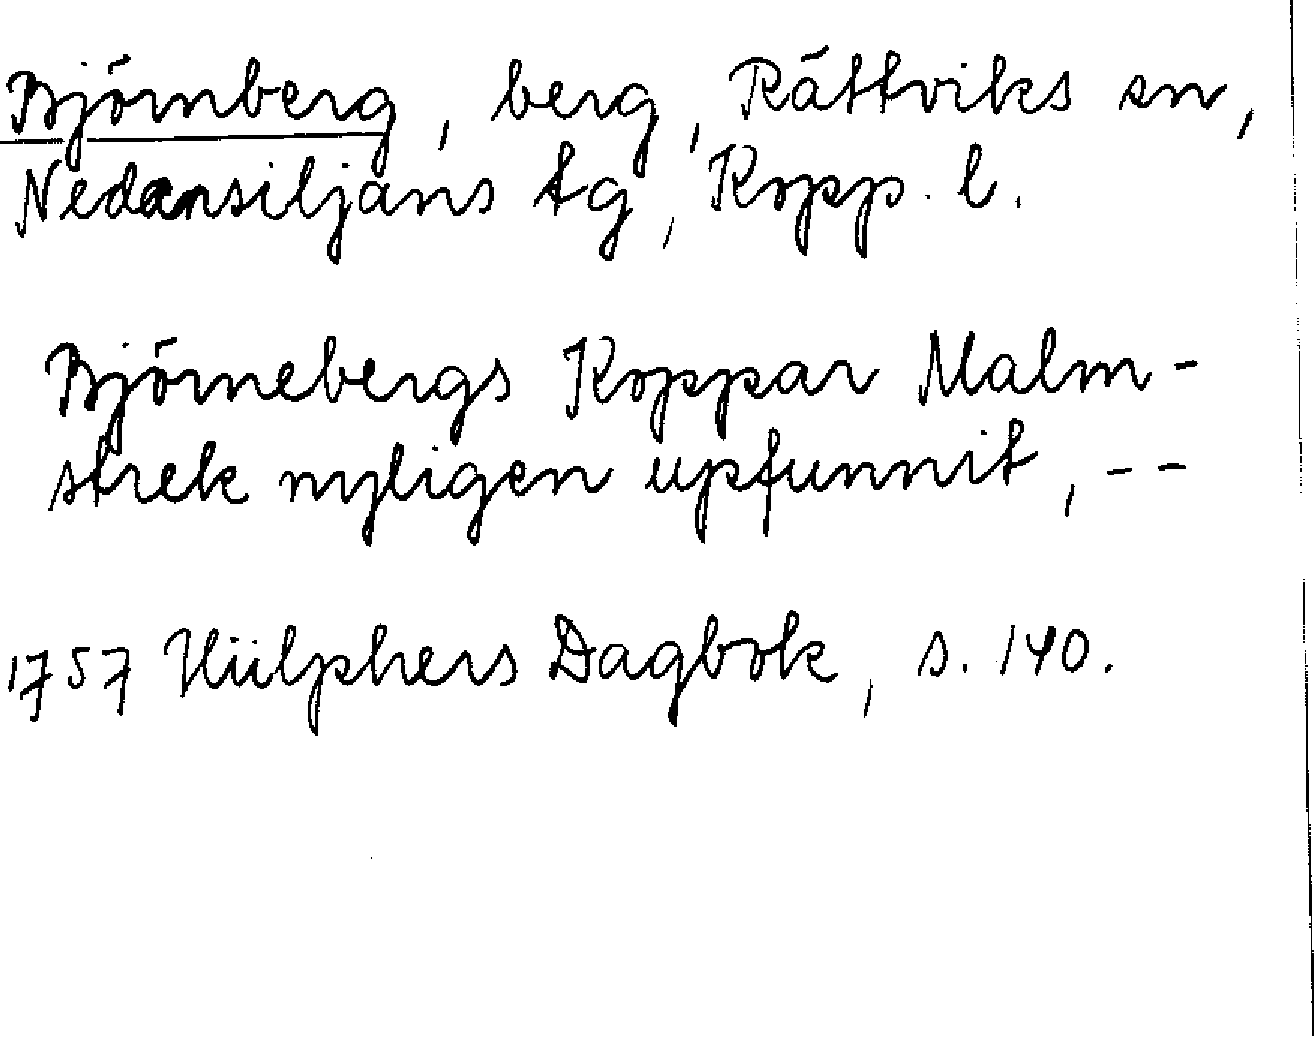 Björnberg, berg, Rättviks sn,
Nedansiljans tg, Kopp. l.
Björnebergs Koppar Malm-
strek nyligen upfunnit, --
1757 Hülphers Dagbok, s. 140.